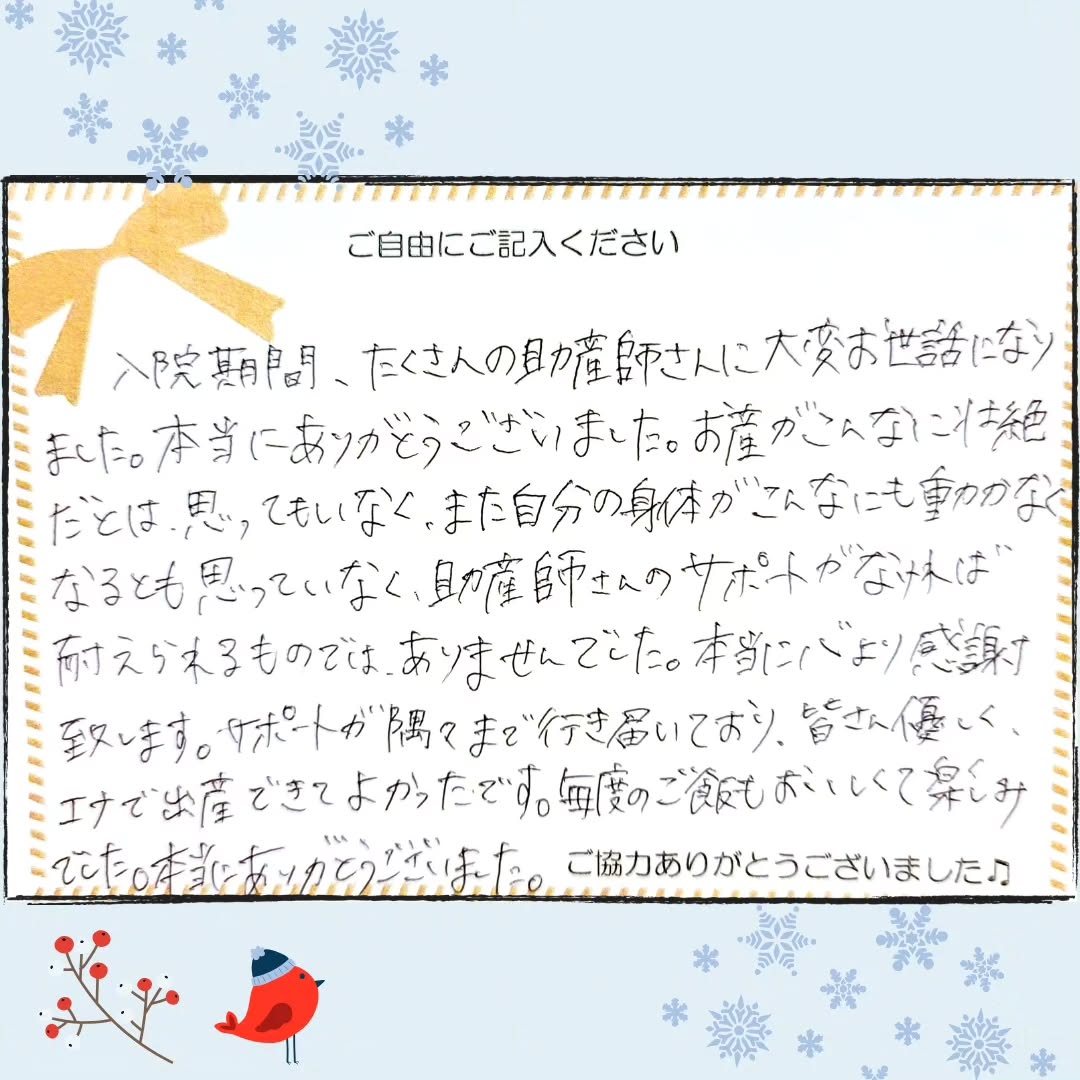 ご自由にご記入ください
入院期間、たくさんの助産師さんに大変お世話になり
ました。本当にありがとうございました。お産がこんなに壮絶
だとは、思ってもいなく、また自分の身体がこんなにも動かなく
なるとも思っていなく、助産師さんのサポートがなければ
耐えられるものでは、ありませんでした。本当に心より感謝
致します。サポートが隅々まで行き届いており、皆さん優しく、
エナで出産できてよかったです。毎度のご飯もおいしくて楽しみ
でした。本当にありがとうございました。
ご協力ありがとうございました♫